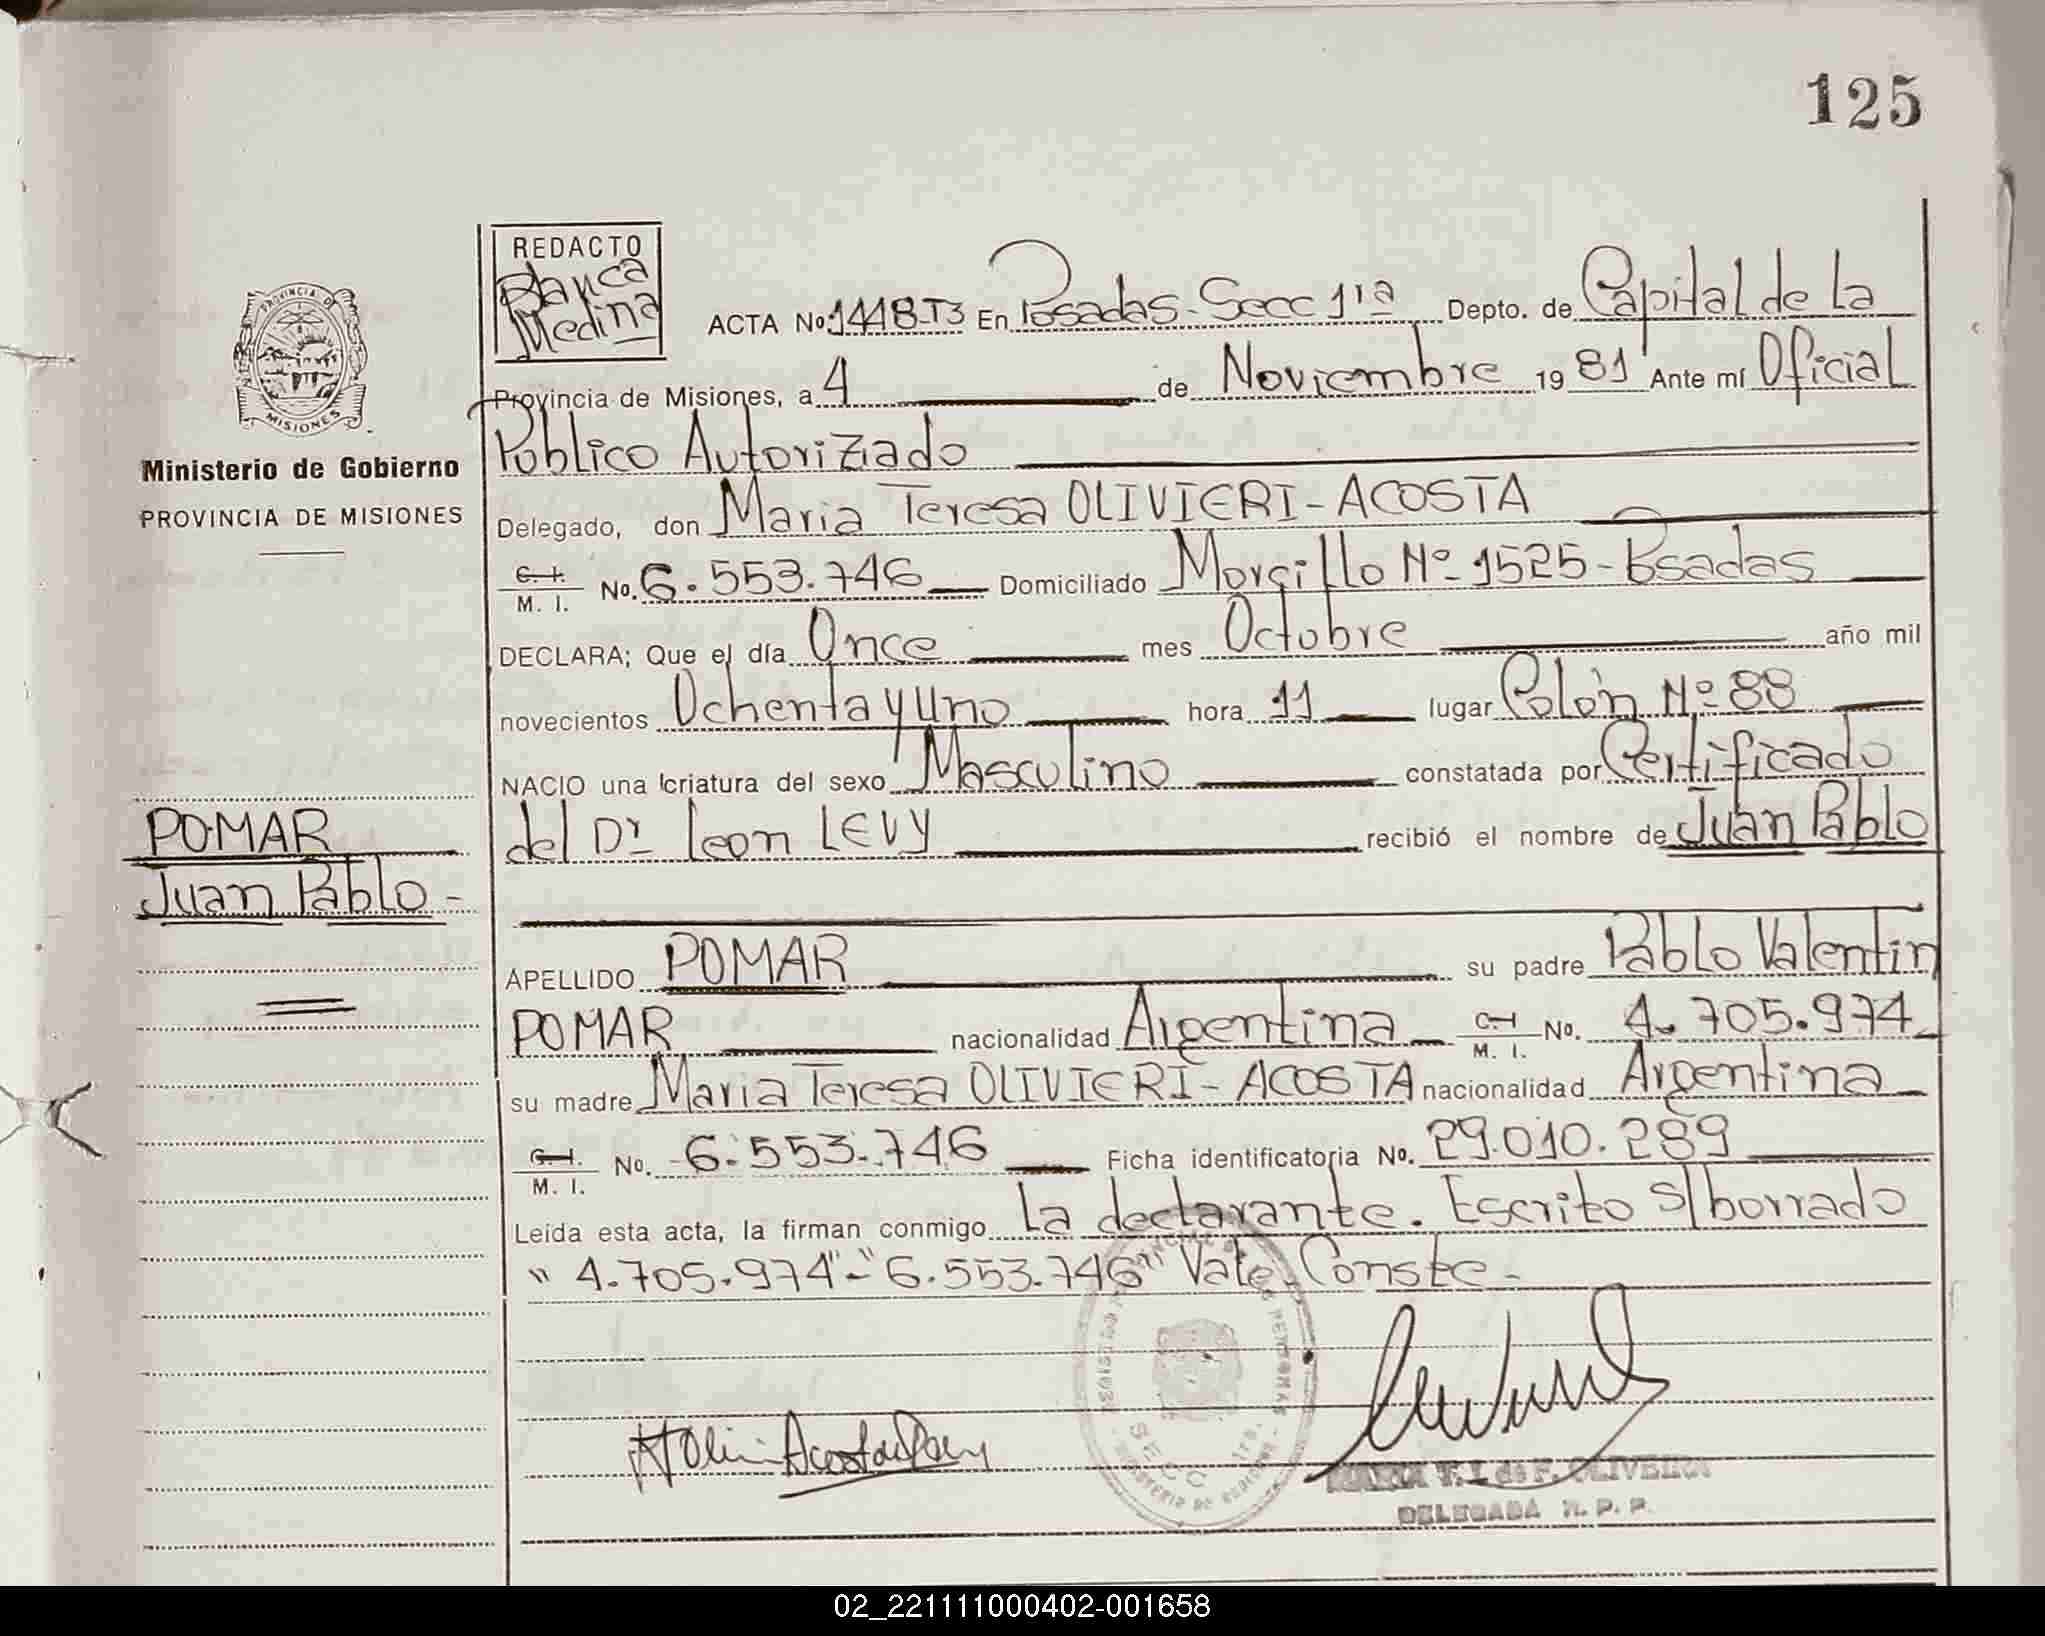 125
REDACTO
Blanca
Medina
PROVINCIA D
MISIONES
Ministerio de Gobierno
PROVINCIA DE MISIONES
ACTA No. 1448-T3 En Posadas-Secc 1ra Depto. de Capital de la
Provincia de Misiones, a 4 de Noviembre 1981 Ante mí Oficial
Público Autorizado
Delegado, don Maria Teresa OLIVIERI-ACOSTA
C. I. M. I. No. 6.553.746 Domiciliado Morcillo Nº 1525-Posadas
DECLARA; Que el día Once mes Octubre año mil
novecientos Ochenta y Uno hora 11 lugar Colón Nº 88
NACIO una criatura del sexo Masculino constatada por Certificado
del Dr Leon LEVY recibió el nombre de Juan Pablo
POMAR
Juan Pablo-
APELLIDO POMAR su padre Pablo Valentin
POMAR nacionalidad Argentina C. I. M. I. No. 4.705.974
su madre Maria Teresa OLIVIERI-ACOSTA nacionalidad Argentina
C. I. M. I. No. 6.553.746 Ficha identificatoria No. 29.010.289
Leída esta acta, la firman conmigo La declarante. Escrito s/borrado
"4.705.974"-"6.553.746" Vale. Conste-
SECC 1ra.
OLIVEIRA
DELEGADA R. P. P.
02_221111000402-001658